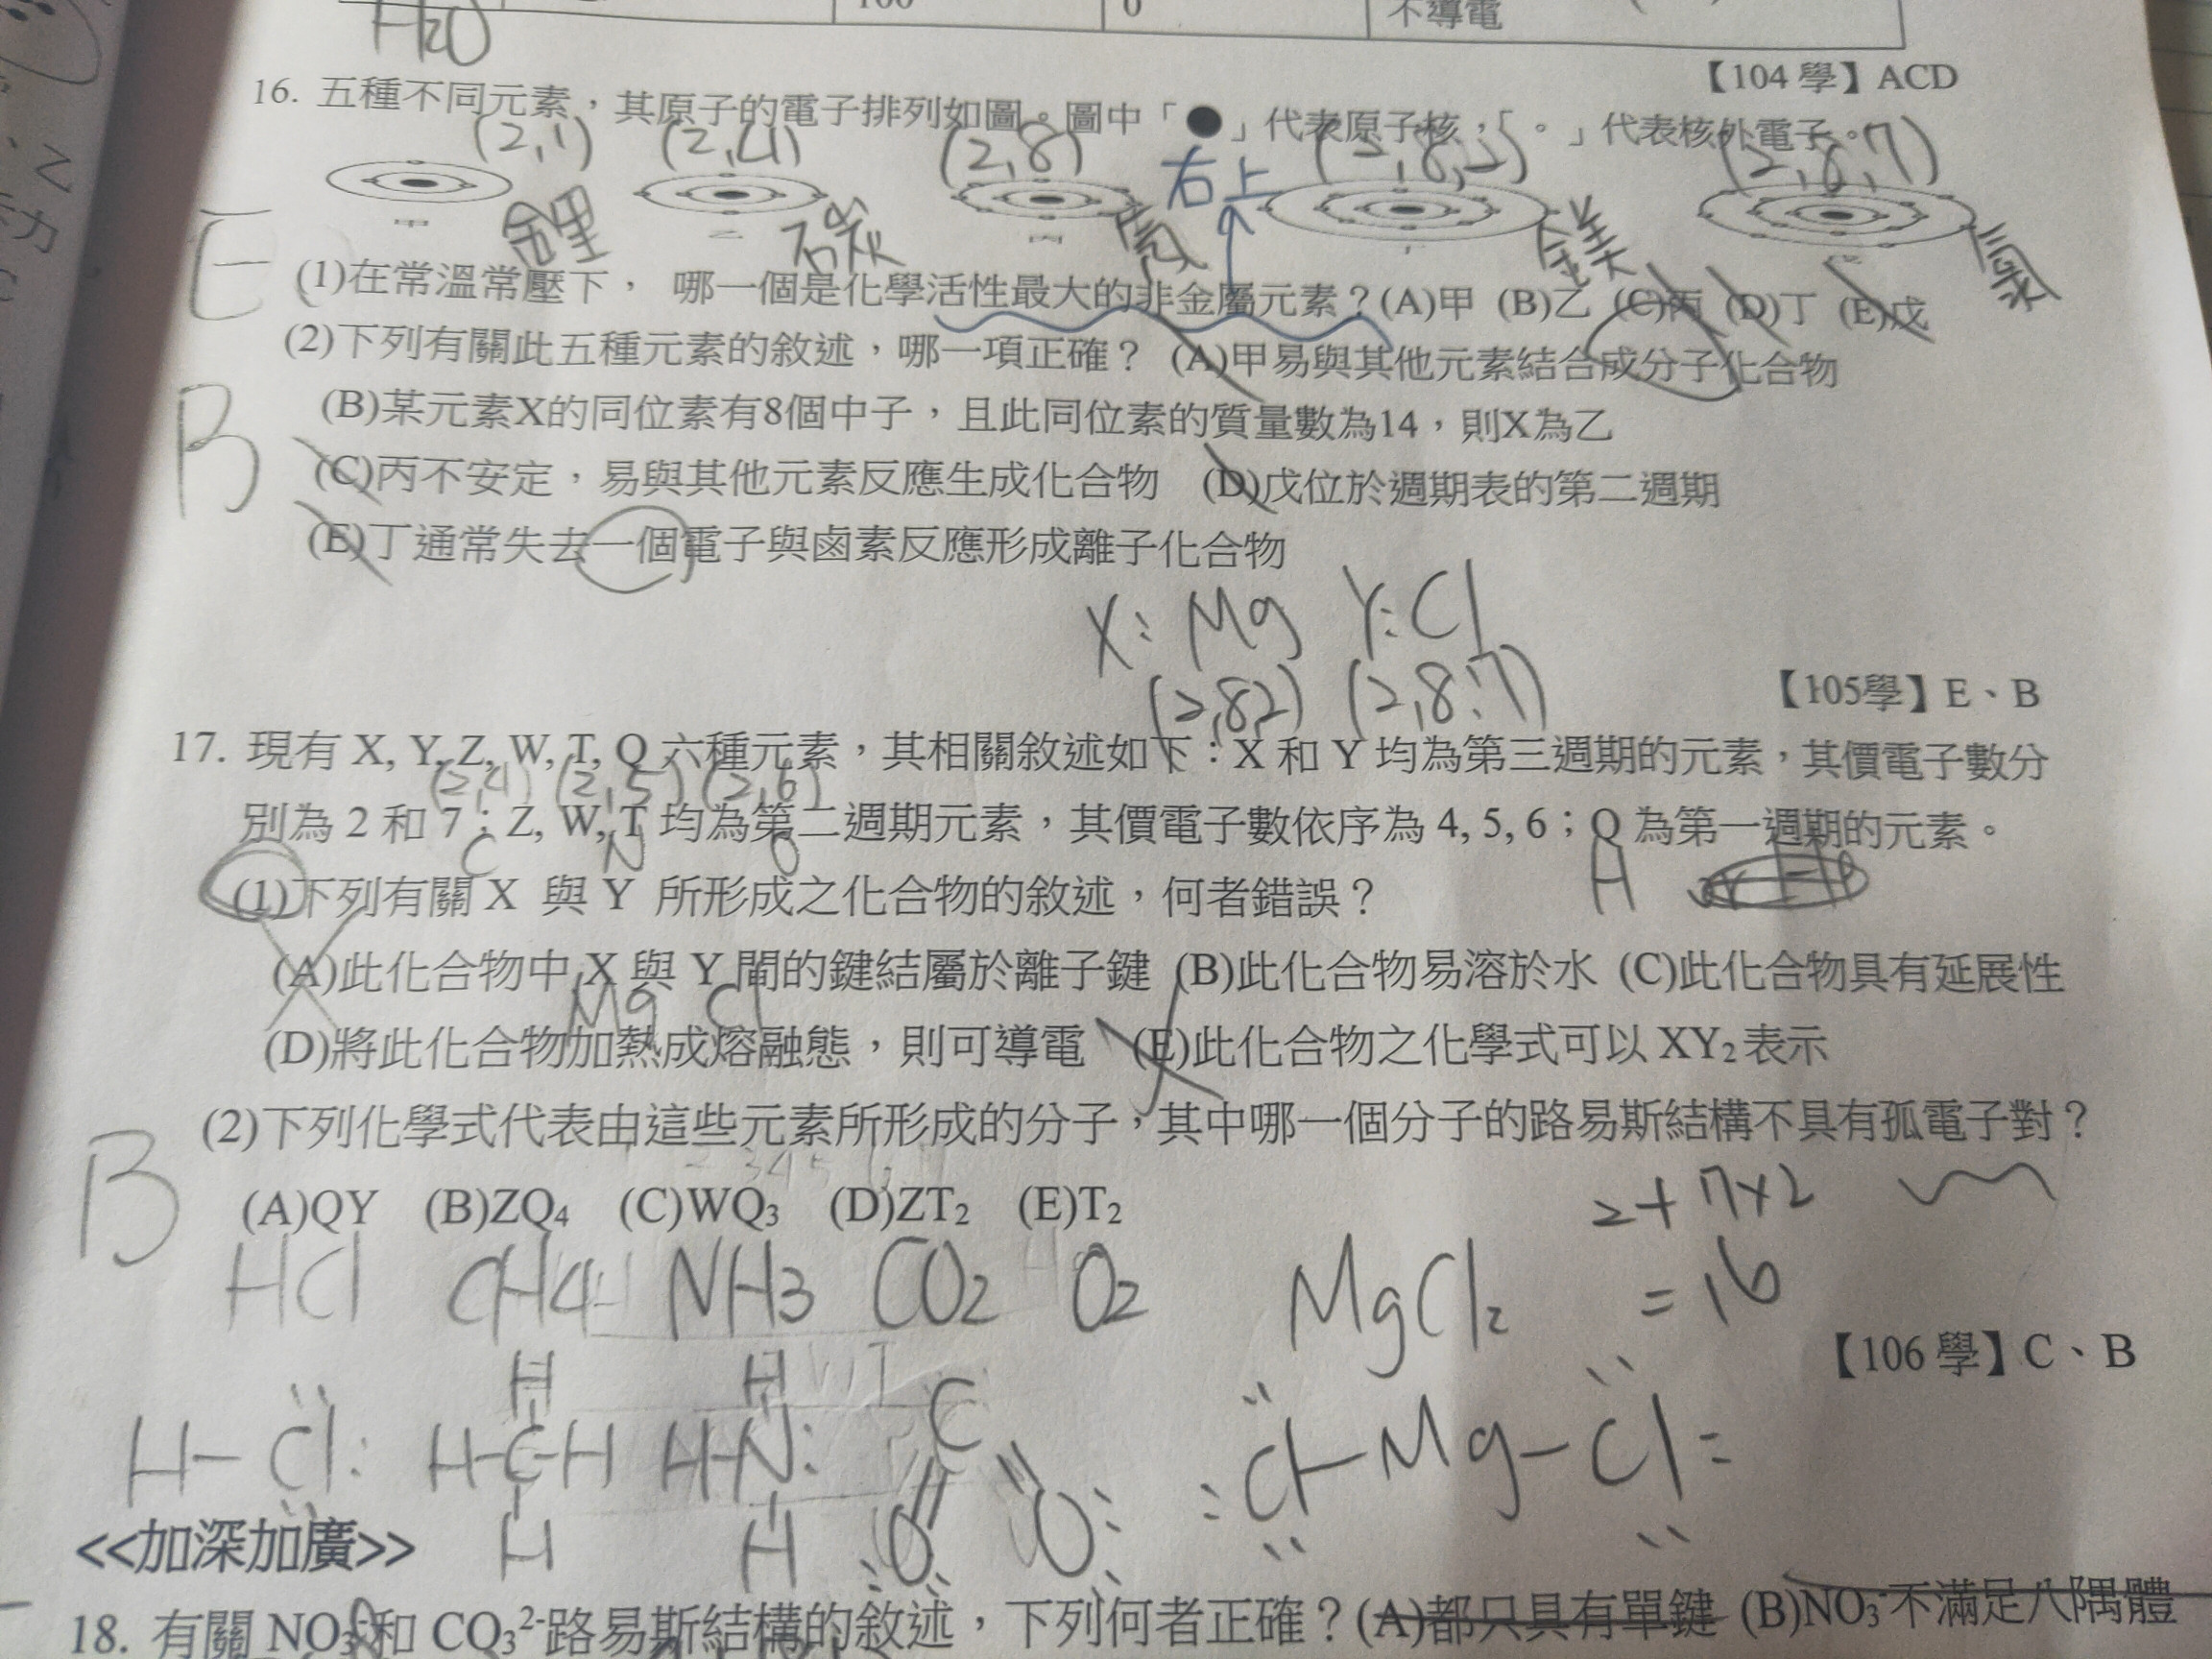 100 0 不導電
H2O
【104 學】ACD
16. 五種不同元素，其原子的電子排列如圖。圖中「●」代表原子核，「。」代表核外電子。
(2,1) (2,4) (2,8) 右上 (2,8,2) (2,8,7)
甲 乙 丙 丁 戊
鋰 碳 氖 鎂 氯
E
(1)在常溫常壓下， 哪一個是化學活性最大的非金屬元素？(A)甲 (B)乙 (C)丙 (D)丁 (E)戊
(2)下列有關此五種元素的敘述，哪一項正確？ (A)甲易與其他元素結合成分子化合物
B
(B)某元素X的同位素有8個中子，且此同位素的質量數為14，則X為乙
(C)丙不安定，易與其他元素反應生成化合物 (D)戊位於週期表的第二週期
(E)丁通常失去一個電子與鹵素反應形成離子化合物
X: Mg Y: Cl
(2,82) (2,8,7)
【105學】E、B
17. 現有 X, Y, Z, W, T, Q 六種元素，其相關敘述如下：X 和 Y 均為第三週期的元素，其價電子數分
(2,4) (2,5) (2,6)
別為 2 和 7；Z, W, T 均為第二週期元素，其價電子數依序為 4, 5, 6；Q 為第一週期的元素。
C N O H
(1)下列有關 X 與 Y 所形成之化合物的敘述，何者錯誤？
(A)此化合物中 X 與 Y 間的鍵結屬於離子鍵 (B)此化合物易溶於水 (C)此化合物具有延展性
Mg Cl
(D)將此化合物加熱成熔融態，則可導電 (E)此化合物之化學式可以 XY2 表示
(2)下列化學式代表由這些元素所形成的分子，其中哪一個分子的路易斯結構不具有孤電子對？
B
(A)QY (B)ZQ4 (C)WQ3 (D)ZT2 (E)T2
2+7×2
HCl CH4 NH3 CO2 O2 MgCl2 =16
【106 學】C、B
H H C
H-Cl: H-C-H H-N: :Cl-Mg-Cl:
H H O O:
<<加深加廣>>
18. 有關 NO3-和 CO3 2-路易斯結構的敘述，下列何者正確？(A)都只具有單鍵 (B)NO3-不滿足八隅體